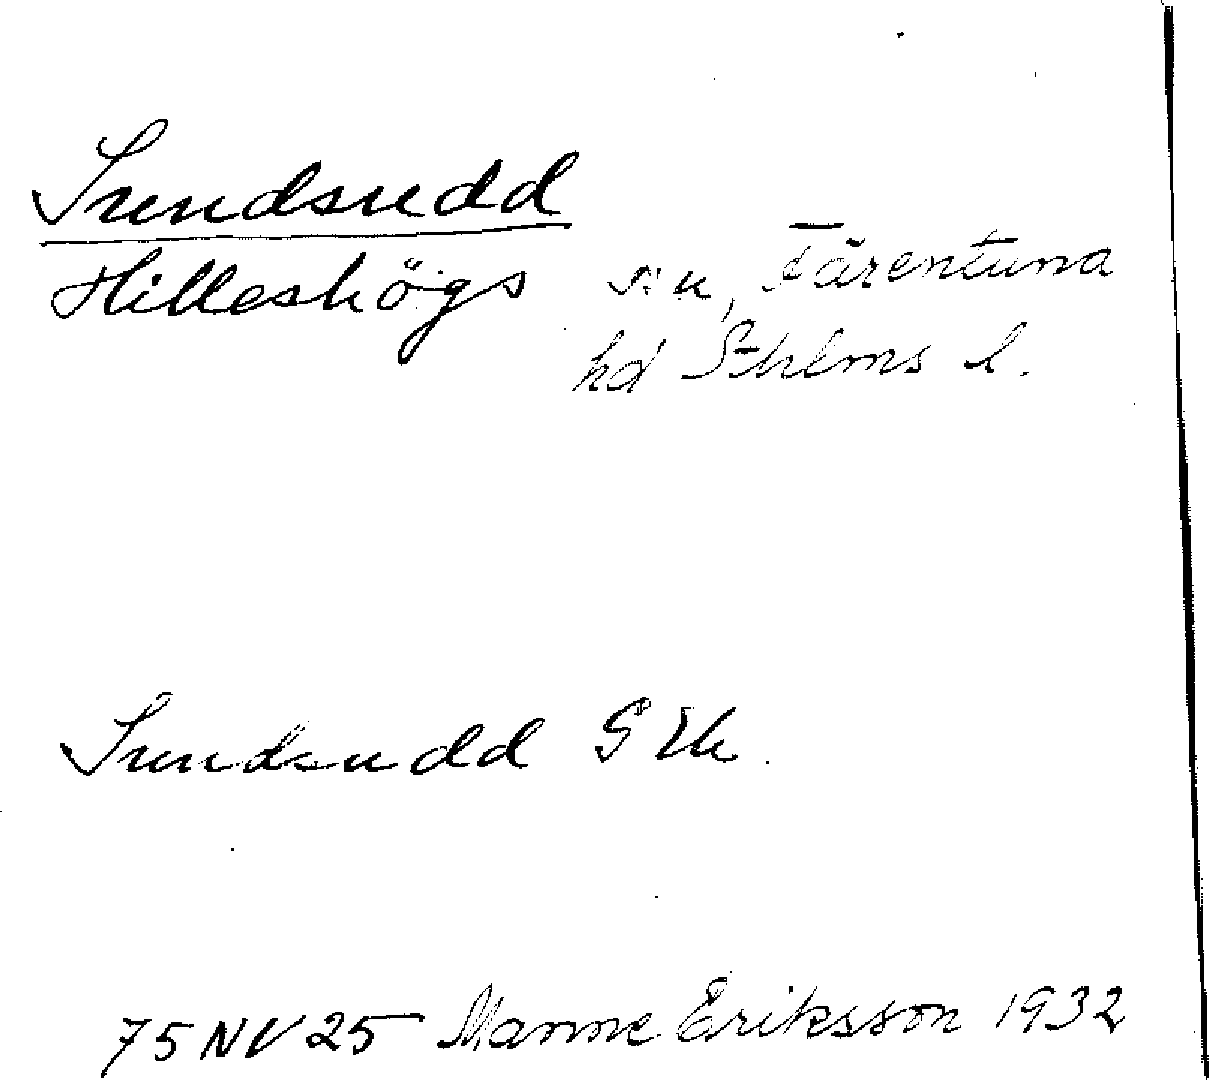 Sundsudd
Hilleshögs sn, Färentuna
hd Sthlms l.
Sundsudd GEk
75 NV 25 Manne Eriksson 1932